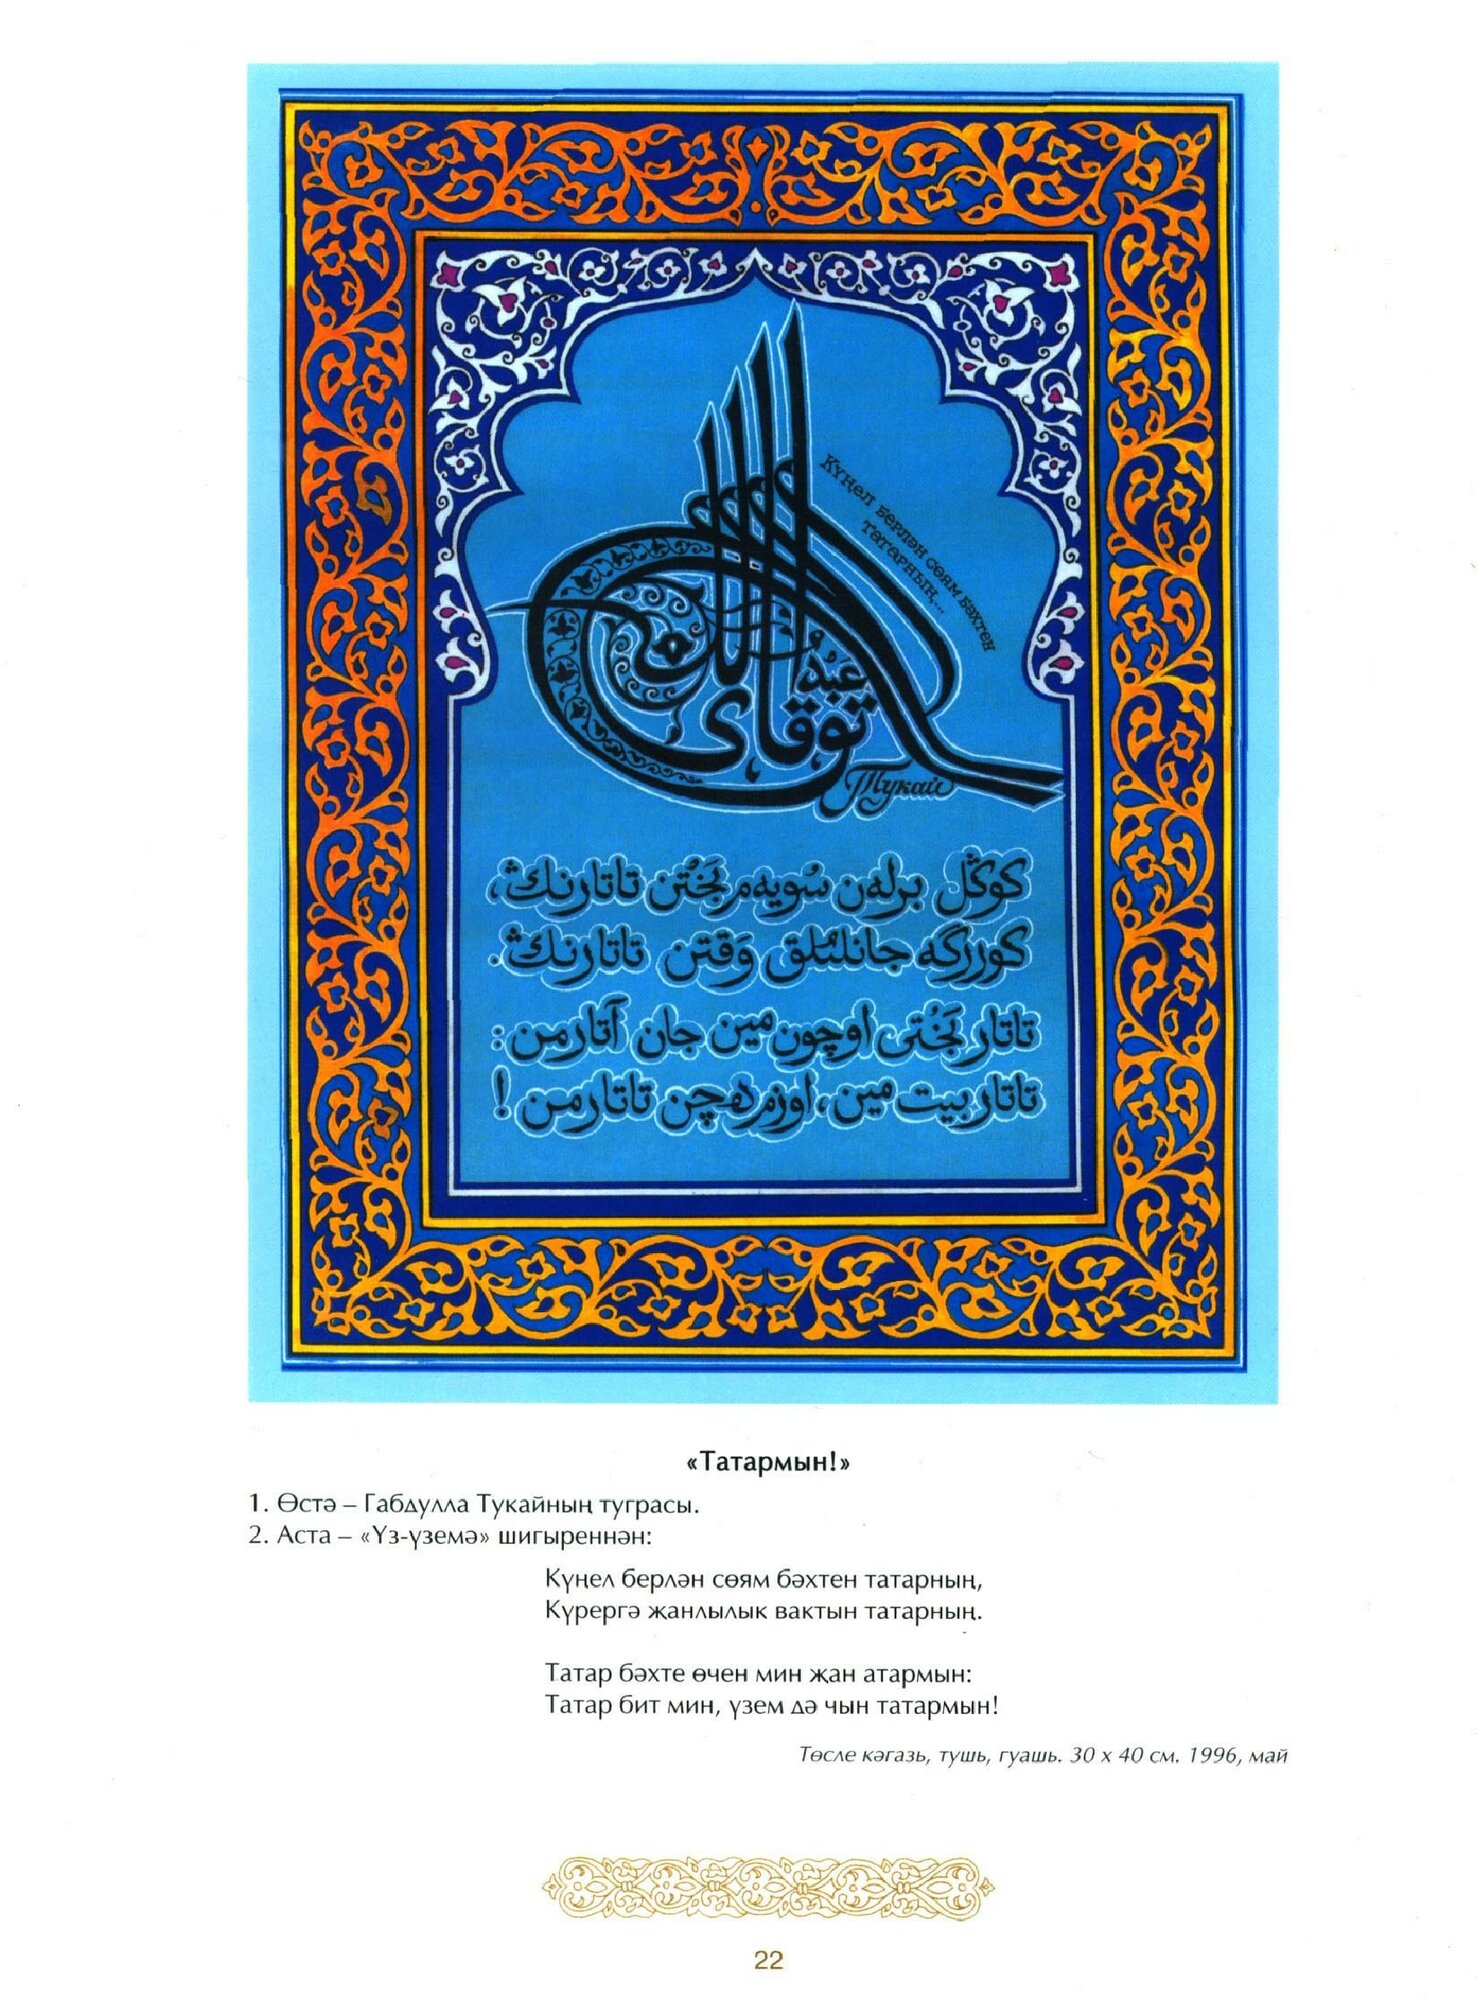 Күңел берлән сөям бәхтен
татарның...
عبد الله
توقای
Тукай
كوڭل برلەن سویەم بَخْتن تاتارنڭ،
كوررگە جانلىلق وَقتن تاتارنڭ.
تاتار بَخْتی اوچون مین جان آتارمن:
تاتار بیت مین، اوزم دە چن تاتارمن!
«Татармын!»
1. Өстә – Габдулла Тукайның туграсы.
2. Аста – «Үз-үземә» шигыреннән:
Күңел берлән сөям бәхтен татарның,
Күрергә җанлылык вактын татарның.
Татар бәхте өчен мин җан атармын:
Татар бит мин, үзем дә чын татармын!
Төсле кәгазь, тушь, гуашь. 30 х 40 см. 1996, май
22